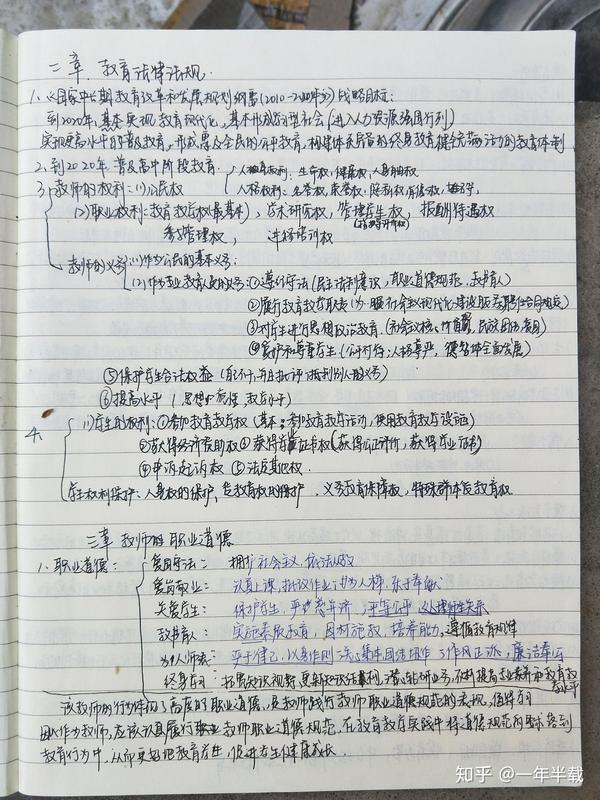 二章. 教育法律法规.
1、《国家中长期教育改革和发展规划纲要(2010-2020年)》战略目标:
到2020年,基本实现教育现代化,基本形成学习型社会(进入人力资源强国行列)
实现更高水平的普及教育,形成惠及全民的公平教育,构建体系完备的终身教育 健全充满活力的教育体制
2、到2020年 普及高中阶段教育.
3、教师的权利:(1)公民权
人身权利:生命权,健康权,人身自由权
人格权利:名誉权,荣誉权,隐私权,肖像权,姓名权
(2)职业权利:教育教学权(最基本),学术研究权,管理学生权,报酬待遇权
(指导评价权)
参与管理权, 进修培训权
教师的义务:(1)作为公民的基本义务:
(2)作为专业教育人员的义务:①遵纪守法(民主法制意识,职业道德规范,教书育人)
②履行教育教学职责
③对学生进行思想政治教育
④爱护和尊重学生(公平对待;人格尊严,德智体全面发展)
⑤保护学生合法权益
⑥提高水平(思想政治觉悟,教学水平)
4、(1)学生的权利:①参加教育教学权(基本:参加教育教学活动,使用教育教学设施)
②获得经济资助权 ③获得学业证书权(获得公正评价,获得学业证书)
④申诉起诉权 ⑤法定其他权.
学生权利保护:人身权的保护,受教育权的保护.义务教育保障权,特殊群体受教育权
三章 教师的职业道德
1、职业道德: 爱国守法: 拥护社会主义,依法执教
爱岗敬业: 认真上课,批改作业,为人梯,乐于奉献
关爱学生: 保护学生,严慈并济,平等公平 处理师生关系
教书育人: 实施素质教育,因材施教,培养能力,遵循教育规律
为人师表: 严于律己,以身作则,关心集体 团结协作,作风正派,廉洁奉公
终身学习: 拓宽知识视野,更新知识结构,潜心钻研业务,不断提高专业素养和教育教学水平
该教师的行为体现了高度的职业道德,是教师践行教师职业道德规范的表现,值得学习
因此作为教师,应该认真履行职业教师职业道德规范,在教育教学实践中将道德规范的要求落到
教育行为中,从而更好地教育学生,促进学生健康成长.
知乎 @一年半载